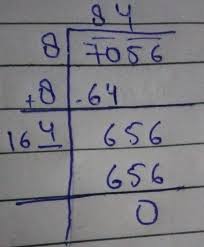 84
8 7056
+8 -64
164 656
656
0